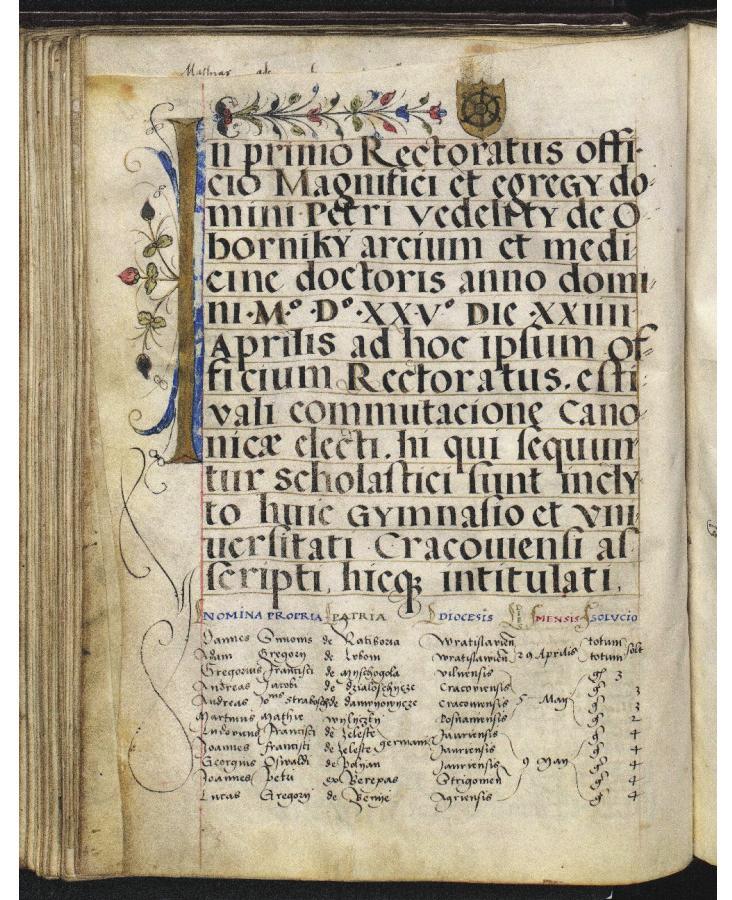 In primo Rectoratus offi-
cio Magnifici et egregy do-
mini Petri vedelity de O
borniky arcium et medi-
cine doctoris anno domi-
ni·M°·D°·XXV° Die ·XXIIII·
Aprilis ad hoc ipsum of-
ficium Rectoratus. esti-
vali commutacione Cano-
nicæ electi. hi qui sequun-
tur scholastici sunt incly-
to huic Gymnasio et vni-
uersitati Cracouiensi as-
scripti, hicq; intitulati.
NOMINA PROPRIA PATRIA DIOCESIS DIE MENSIS SOLVCIO
Joannes Simonis de Ratiboria Wratislavien totum
Adam Gregory de Wratislavien 29 Aprilis totum solt
Gregorius francisci de vilnensis 3
Andreas Jacobi de dzialoschycze Cracoviensis 3
Andreas de Cracoviensis 5 May 3
Martinus Mathie Posnaniensis 2
Ludovicus Francisci de Zeleste Jauriensis 4
Joannes francisci de Zeleste germani Jauriensis 4
Georgius Osvaldi de Jauriensis 9 May 4
Joannes Petri ex Berepas Strigonien 4
Lucas Gregory de Agriensis 4